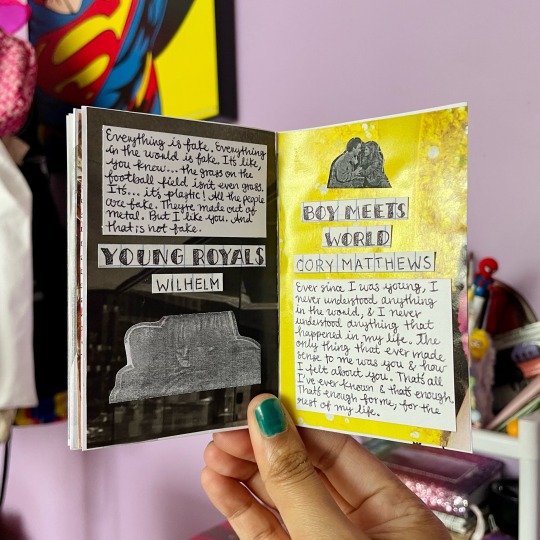 Everything is fake. Everything
in the world is fake. It's like,
you know... the grass on the
football field isn't even grass.
It's... it's plastic! All the people
are fake. They're made out of
metal. But I like you. And
that is not fake.
YOUNG ROYALS
WILHELM
BOY MEETS
WORLD
CORY MATTHEWS
Ever since I was young, I
never understood anything
in the world, & I never
understood anything that
happened in my life. The
only thing that ever made
sense to me was you & how
I felt about you. That's all
I've ever known & that's enough.
That's enough for me, for the
rest of my life.